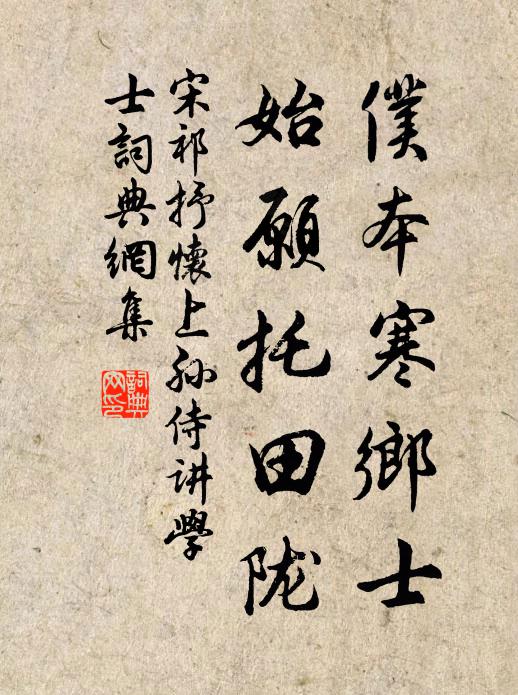 僕本寒鄉士
始願托田陇
宋祁抒懷上孙侍讲學
士詞典網集
詞典
网印